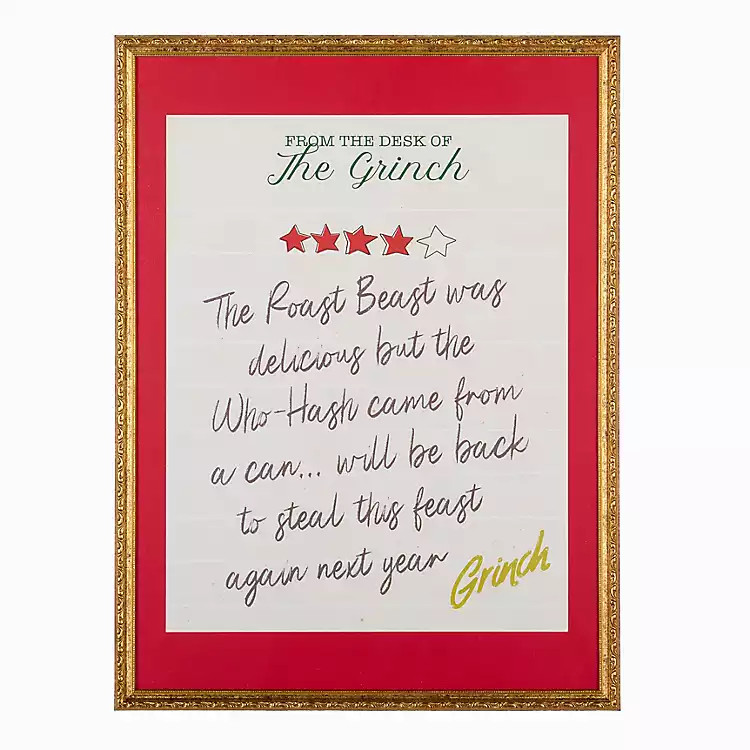 FROM THE DESK OF
The Grinch
The Roast Beast was
delicious but the
Who-Hash came from
a can... will be back
to steal this feast
again next year
Grinch